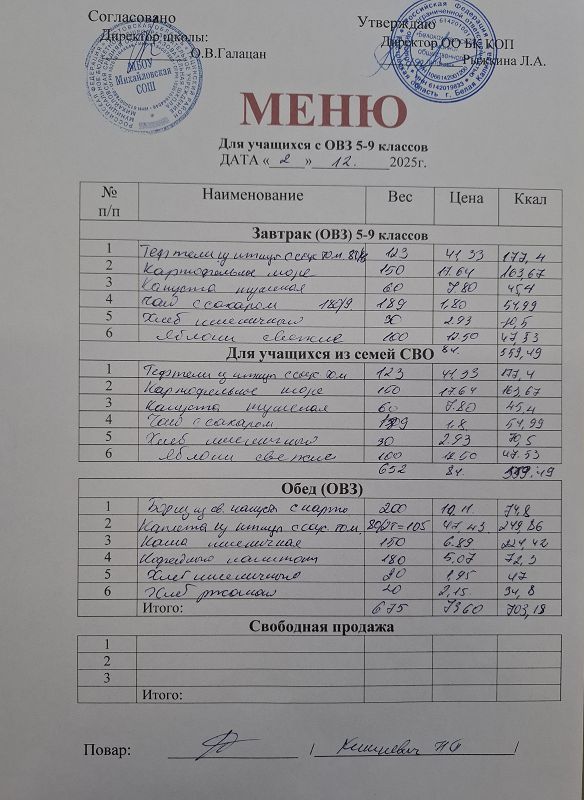 Согласовано Утверждаю
Директор школы: Директор ОО БК КОП
О.В.Галацан Рыжкина Л.А.
МБОУ
Михайловская
СОШ
МЕНЮ
Для учащихся с ОВЗ 5-9 классов
ДАТА « 2 » 12. 2025г.
№ п/п Наименование Вес Цена Ккал
Завтрак (ОВЗ) 5-9 классов
1 Тефтели из птицы с соус том. 123 41,33 177,4
2 Картофельное пюре 150 17.64 163,67
3 Капуста тушеная 60 7.80 45,4
4 Чай с сахаром 180/9. 189 1,80 51,99
5 Хлеб пшеничный 30 2.93 70,5
6 Яблоки свежие 100 12.50 47.53
84. 559,49
Для учащихся из семей СВО
1 Тефтели из птицы с соус том 123 41,33 177,4
2 Картофельное пюре 150 17.64 163,67
3 Капуста тушеная 60 7.80 45,4
4 Чай с сахаром 189 1.8 51,99
5 Хлеб пшеничный 30 2.93 70,5
6 Яблоки свежие 100 47.53
652 84.
Обед (ОВЗ)
1 Борщ из св. капусты с карто 200 10,11 74,8
2 Котлета из птицы с соус. том. =105 47,43 249,86
3 Каша пшеничная 150 6.89 224,42
4 Кофейный напиток 180 5,07 72,3
5 Хлеб пшеничный 20 1,95 47
6 Хлеб ржаной 20 2,15 34,8
Итого: 675 7360 703,18
Свободная продажа
1
2
3
Итого:
Повар: / /